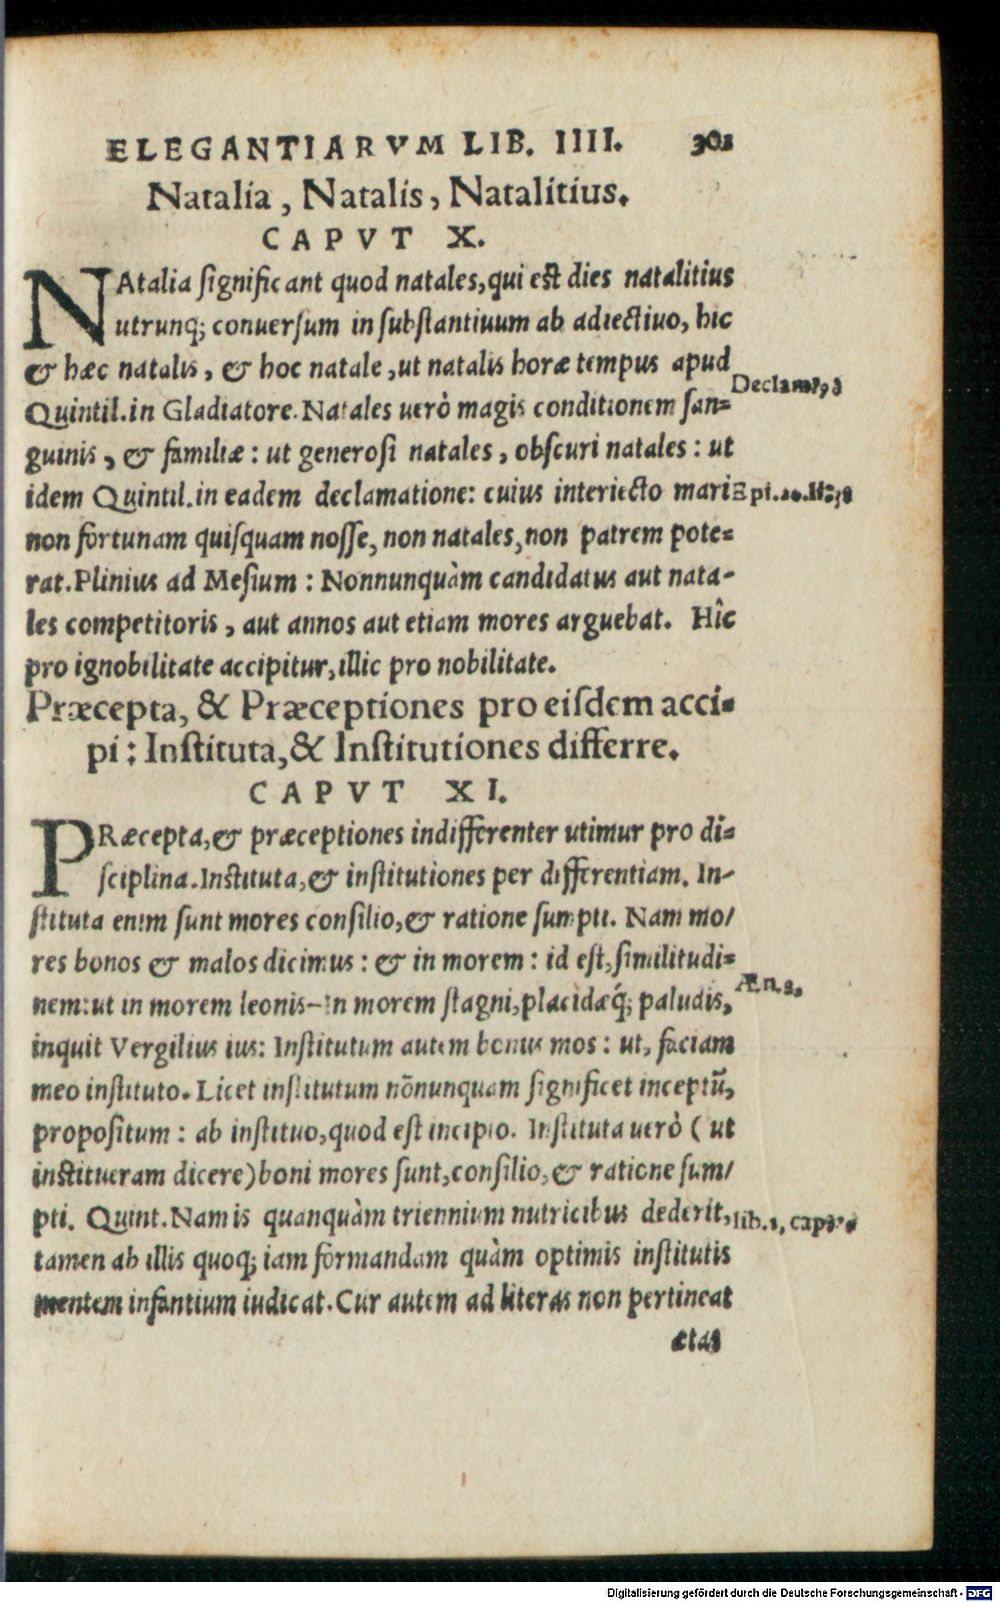 ELEGANTIARVM LIB. IIII. 301
Natalia, Natalis, Natalitius.
CAPVT X.
NAtalia significant quod natales, qui est dies natalitius
utrunq; conuersum in substantiuum ab adiectiuo, hic
& hæc natalis, & hoc natale, ut natalis horæ tempus apud
Declam.
Quintil. in Gladiatore. Natales uerò magis conditionem san=
guinis, & familiæ: ut generosi natales, obscuri natales: ut
idem Quintil. in eadem declamatione: cuius interiecto mari
Epi.
non fortunam quisquam nosse, non natales, non patrem pote=
rat. Plinius ad Mesium: Nonnunquàm candidatus aut nata-
les competitoris, aut annos aut etiam mores arguebat. Hîc
pro ignobilitate accipitur, illic pro nobilitate.
Præcepta, & Præceptiones pro eisdem acci=
pi: Instituta, & Institutiones differre.
CAPVT XI.
PRæcepta, & præceptiones indifferenter utimur pro di=
sciplina. Instituta, & institutiones per differentiam. In-
stituta enim sunt mores consilio, & ratione sumpti. Nam mo/
res bonos & malos dicimus: & in morem: id est, similitudi=
Æn. 8.
nem: ut in morem leonis—In morem stagni, placidæq́; paludis,
inquit Vergilius ius: Institutum autem bonus mos: ut, faciam
meo instituto. Licet institutum nōnunquam significet inceptū,
propositum: ab instituo, quod est incipio. Instituta uerò (ut
institueram dicere) boni mores sunt, consilio, & ratione sum/
pti. Quint. Nam is quanquàm triennium nutricibus dederit,
lib. 1, cap.
tamen ab illis quoq; iam formandam quàm optimis institutis
mentem infantium iudicat. Cur autem ad literas non pertineat
ætas
Digitalisierung gefördert durch die Deutsche Forschungsgemeinschaft - DFG